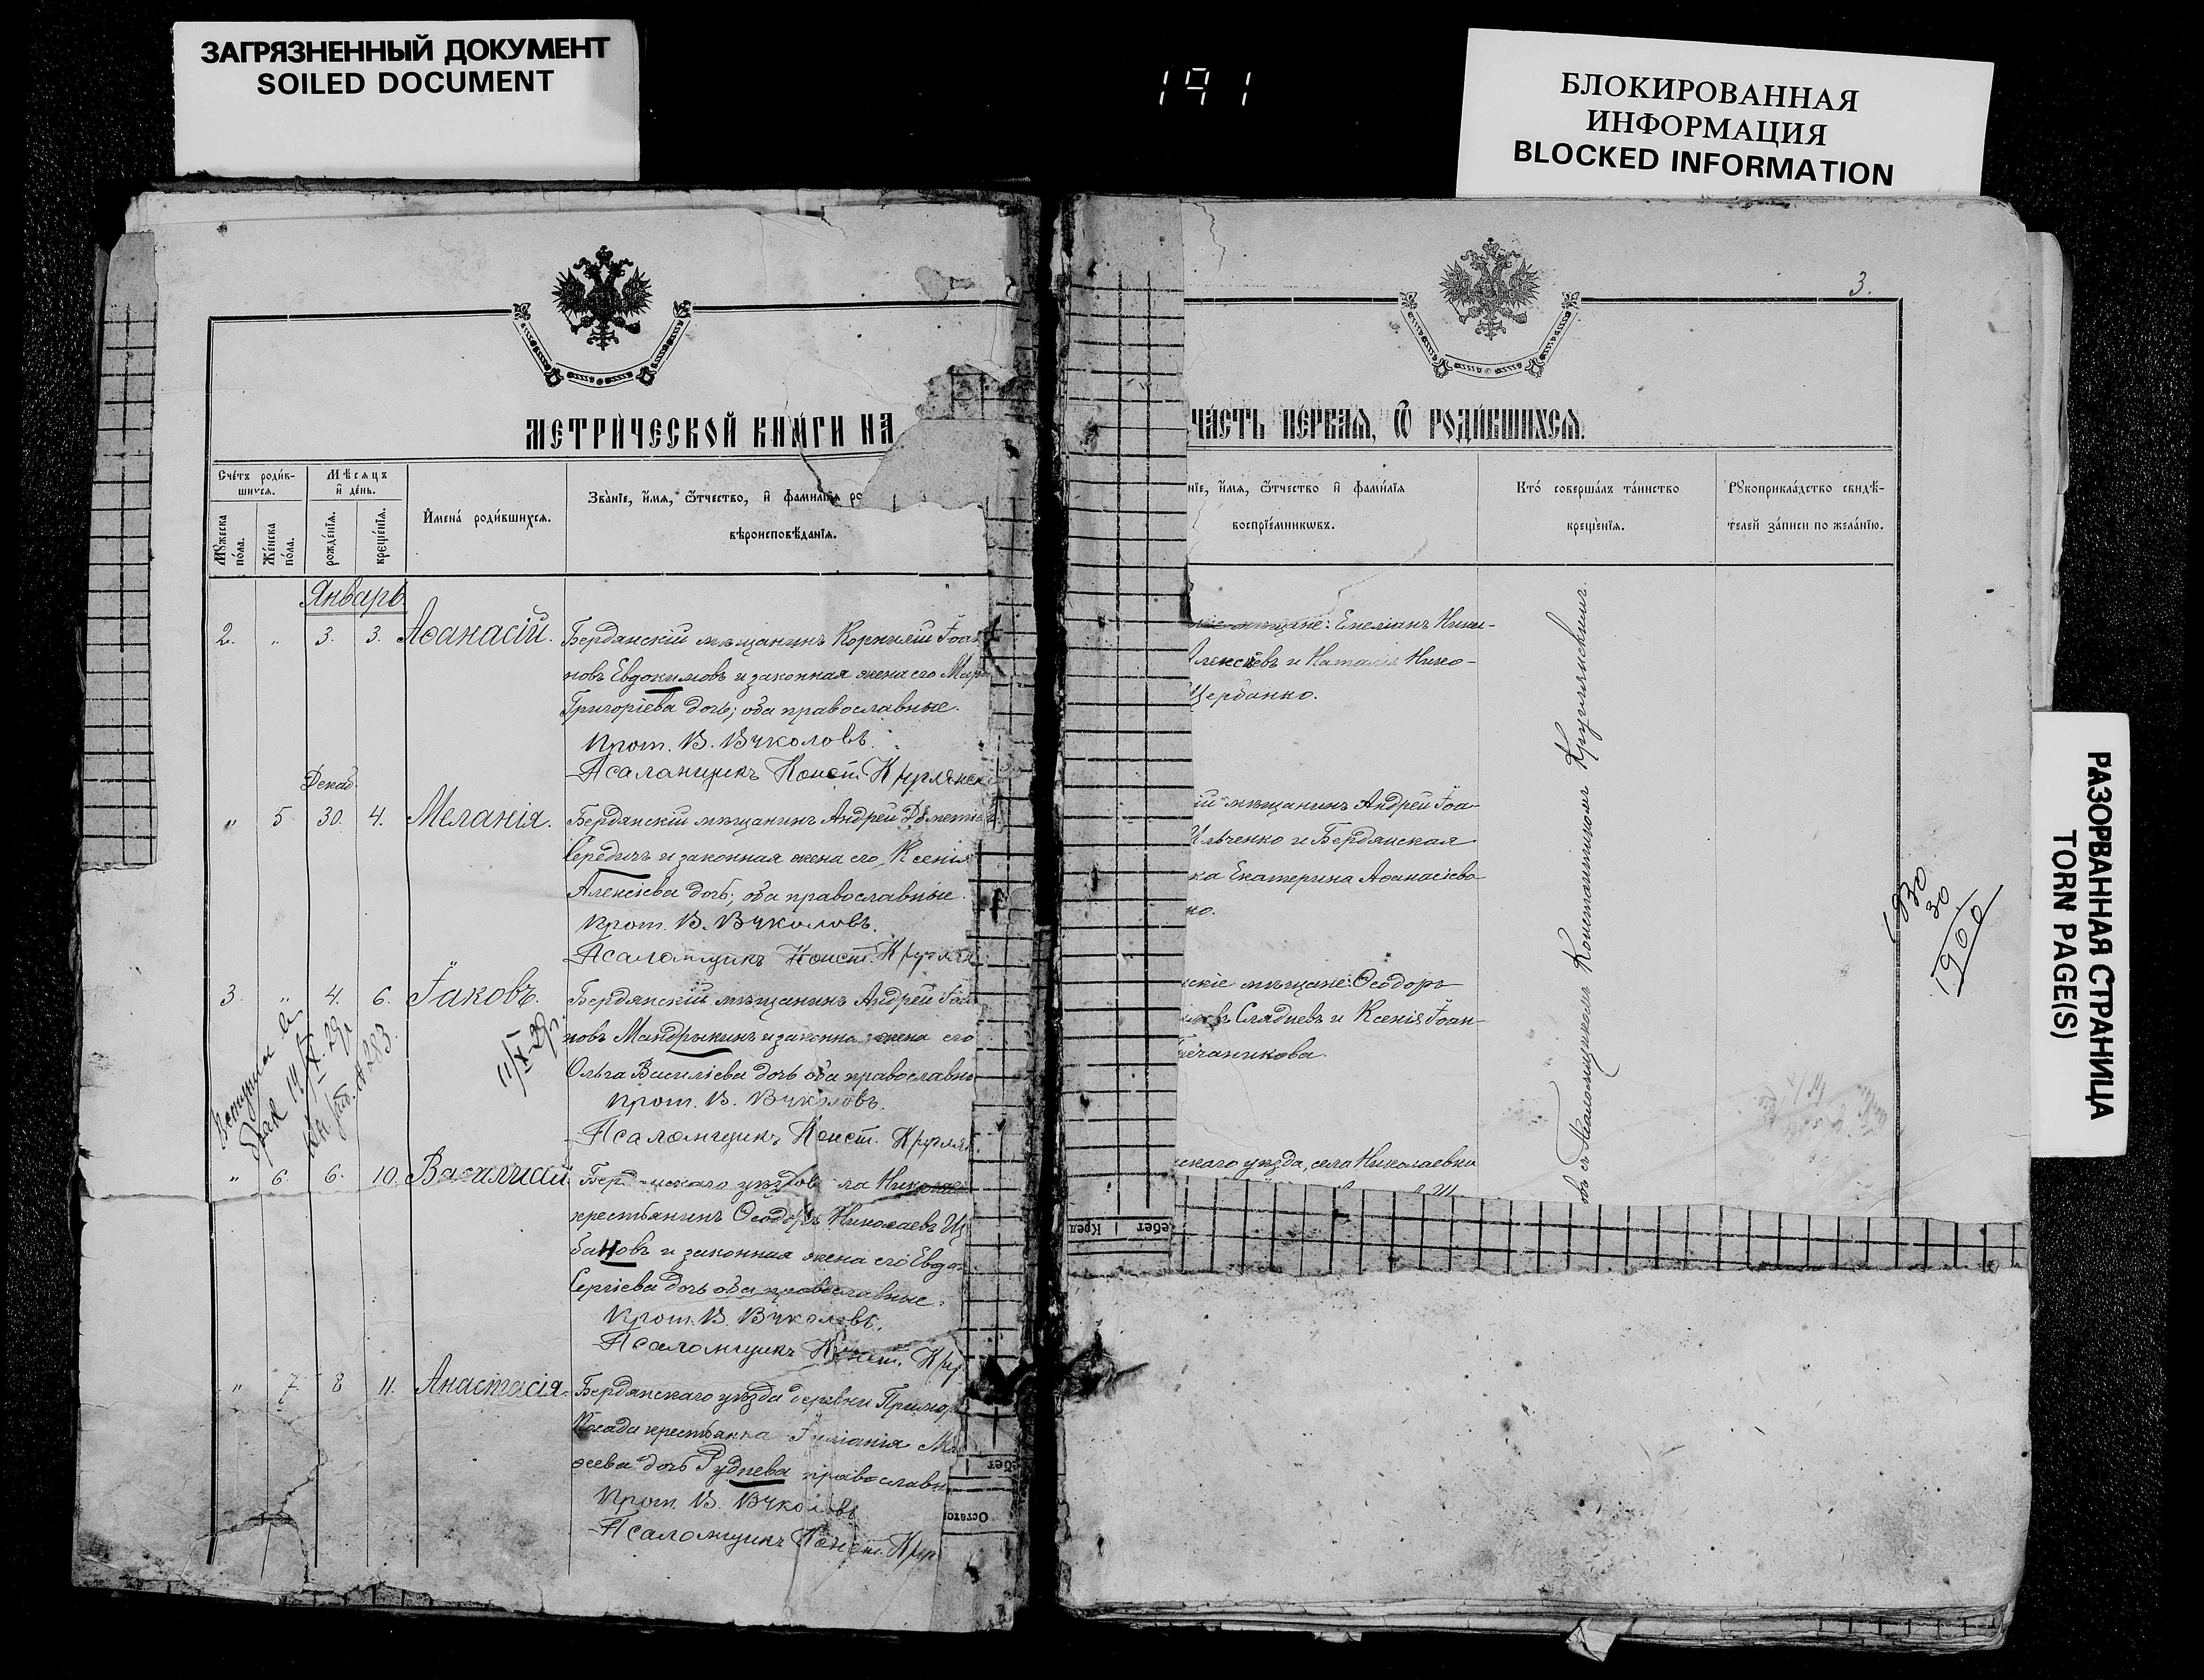 ЗАГРЯЗНЕННЫЙ ДОКУМЕНТ
SOILED DOCUMENT
191
БЛОКИРОВАННАЯ
ИНФОРМАЦИЯ
BLOCKED INFORMATION
МЕТРИЧЕСКОЙ КНИГИ НА
Счетъ родив-
шихся.
Мѣсяцъ
и день.
Мужеска
пола.
Женска
пола.
рожденія.
крещенія.
Имена родившихся.
Званіе, имя, отчество, и фамилія ро
вѣроисповѣданія.
Январь
2. " 3. 3. Аѳанасій. Бердянскій мѣщанинъ Корнилій Іоан
новъ Евдокимовъ и законная жена его Мар
Григоріева дочь; оба православные.
Прот. В. Вуколовъ.
Псаломщикъ Конст. Круглянск
Декаб.
" 5 30. 4. Меланія. Бердянскій мѣщанинъ Андрей Деметіев
Середичъ и законная жена его Ксенія
Алексіева дочь; оба православные.
Прот. В. Вуколовъ.
Псаломщикъ Конст. Круглян
3. " 4. 6. Іаковъ. Бердянскій мѣщанинъ Андрей Іоан
новъ Мандрыкинъ и законна жена его
Ольга Василіева дочь оба православны
Прот. В. Вуколовъ.
Псаломщикъ Конст. Круглян
брак 11/IX. 29г.
№ 283.
11/IX-29г.
" 6. 6. 10. Бер нскаго уѣзда ла Николаев
крестьянинъ Ѳеодоръ Николаевъ Щ
бановъ и законная жена его Евдо
Сергіева дочь оба православные.
Прот. В. Вуколовъ.
Псаломщикъ Конст. Кру
" 7. 8 11. Анастасія. Бердянскаго уѣзда деревни Примор
Посада крестьянка Іуліанія Ма
ѳеева дочь Руднева православн
Прот. В. Вуколовъ
Псаломщикъ Конст. Кру
ебет
Остато
3.
ЧАСТЬ ПЕРВАЯ, Ѿ РОДИВШИХСЯ.
ніе, имя, отчество и фамилія
воспріемниковъ.
Кто совершалъ таинство
крещенія.
Рукоприкладство свидѣ-
телей записи по желанію.
мѣщане: Емеліанъ Ники-
Алексѣевъ и Наталія Нико-
Щербанко.
ій мѣщанинъ Андрей Іоа-
Ильченко и Бердянская
ка Екатерина Аѳанасіева
но.
скіе мѣщане: Ѳеодоръ
Сладневъ и Ксенія Іоан-
ечаникова.
скаго уѣзда, села Николаевки
овъ съ Псаломщикомъ Константиномъ Круглянскимъ.
1930
30
1900
Кред
ебет
РАЗОРВАННАЯ СТРАНИЦА
TORN PAGE(S)